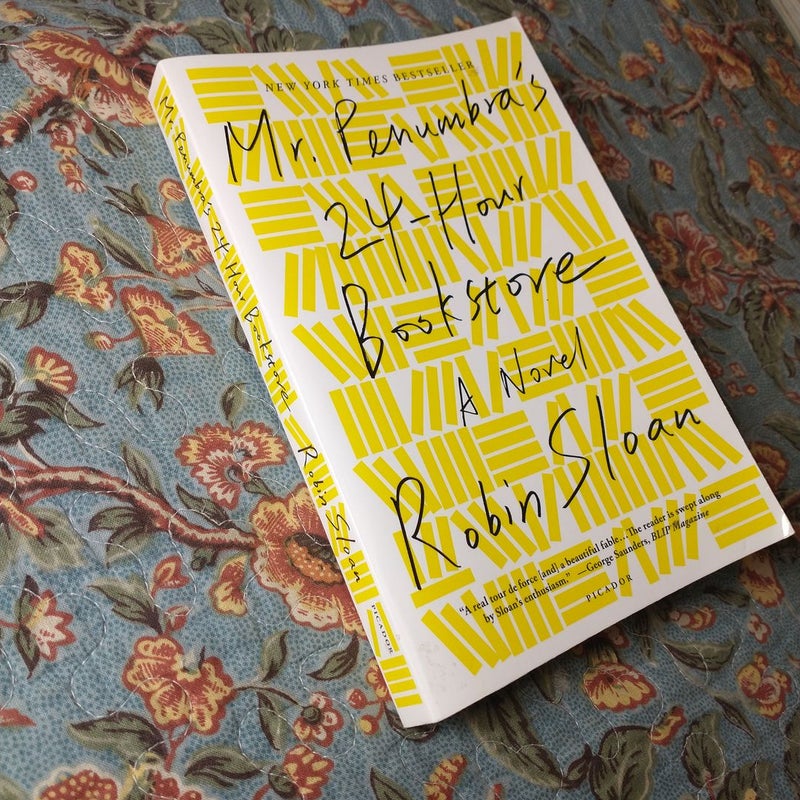 NEW YORK TIMES BESTSELLER
Mr. Penumbra's
24-Hour
Bookstore
A Novel
Robin Sloan
"A real tour de force [and] a beautiful fable...The reader is swept along
by Sloan's enthusiasm." —George Saunders, BLIP Magazine
PICADOR
Mr. Penumbra's 24-Hour Bookstore Robin Sloan PICADOR